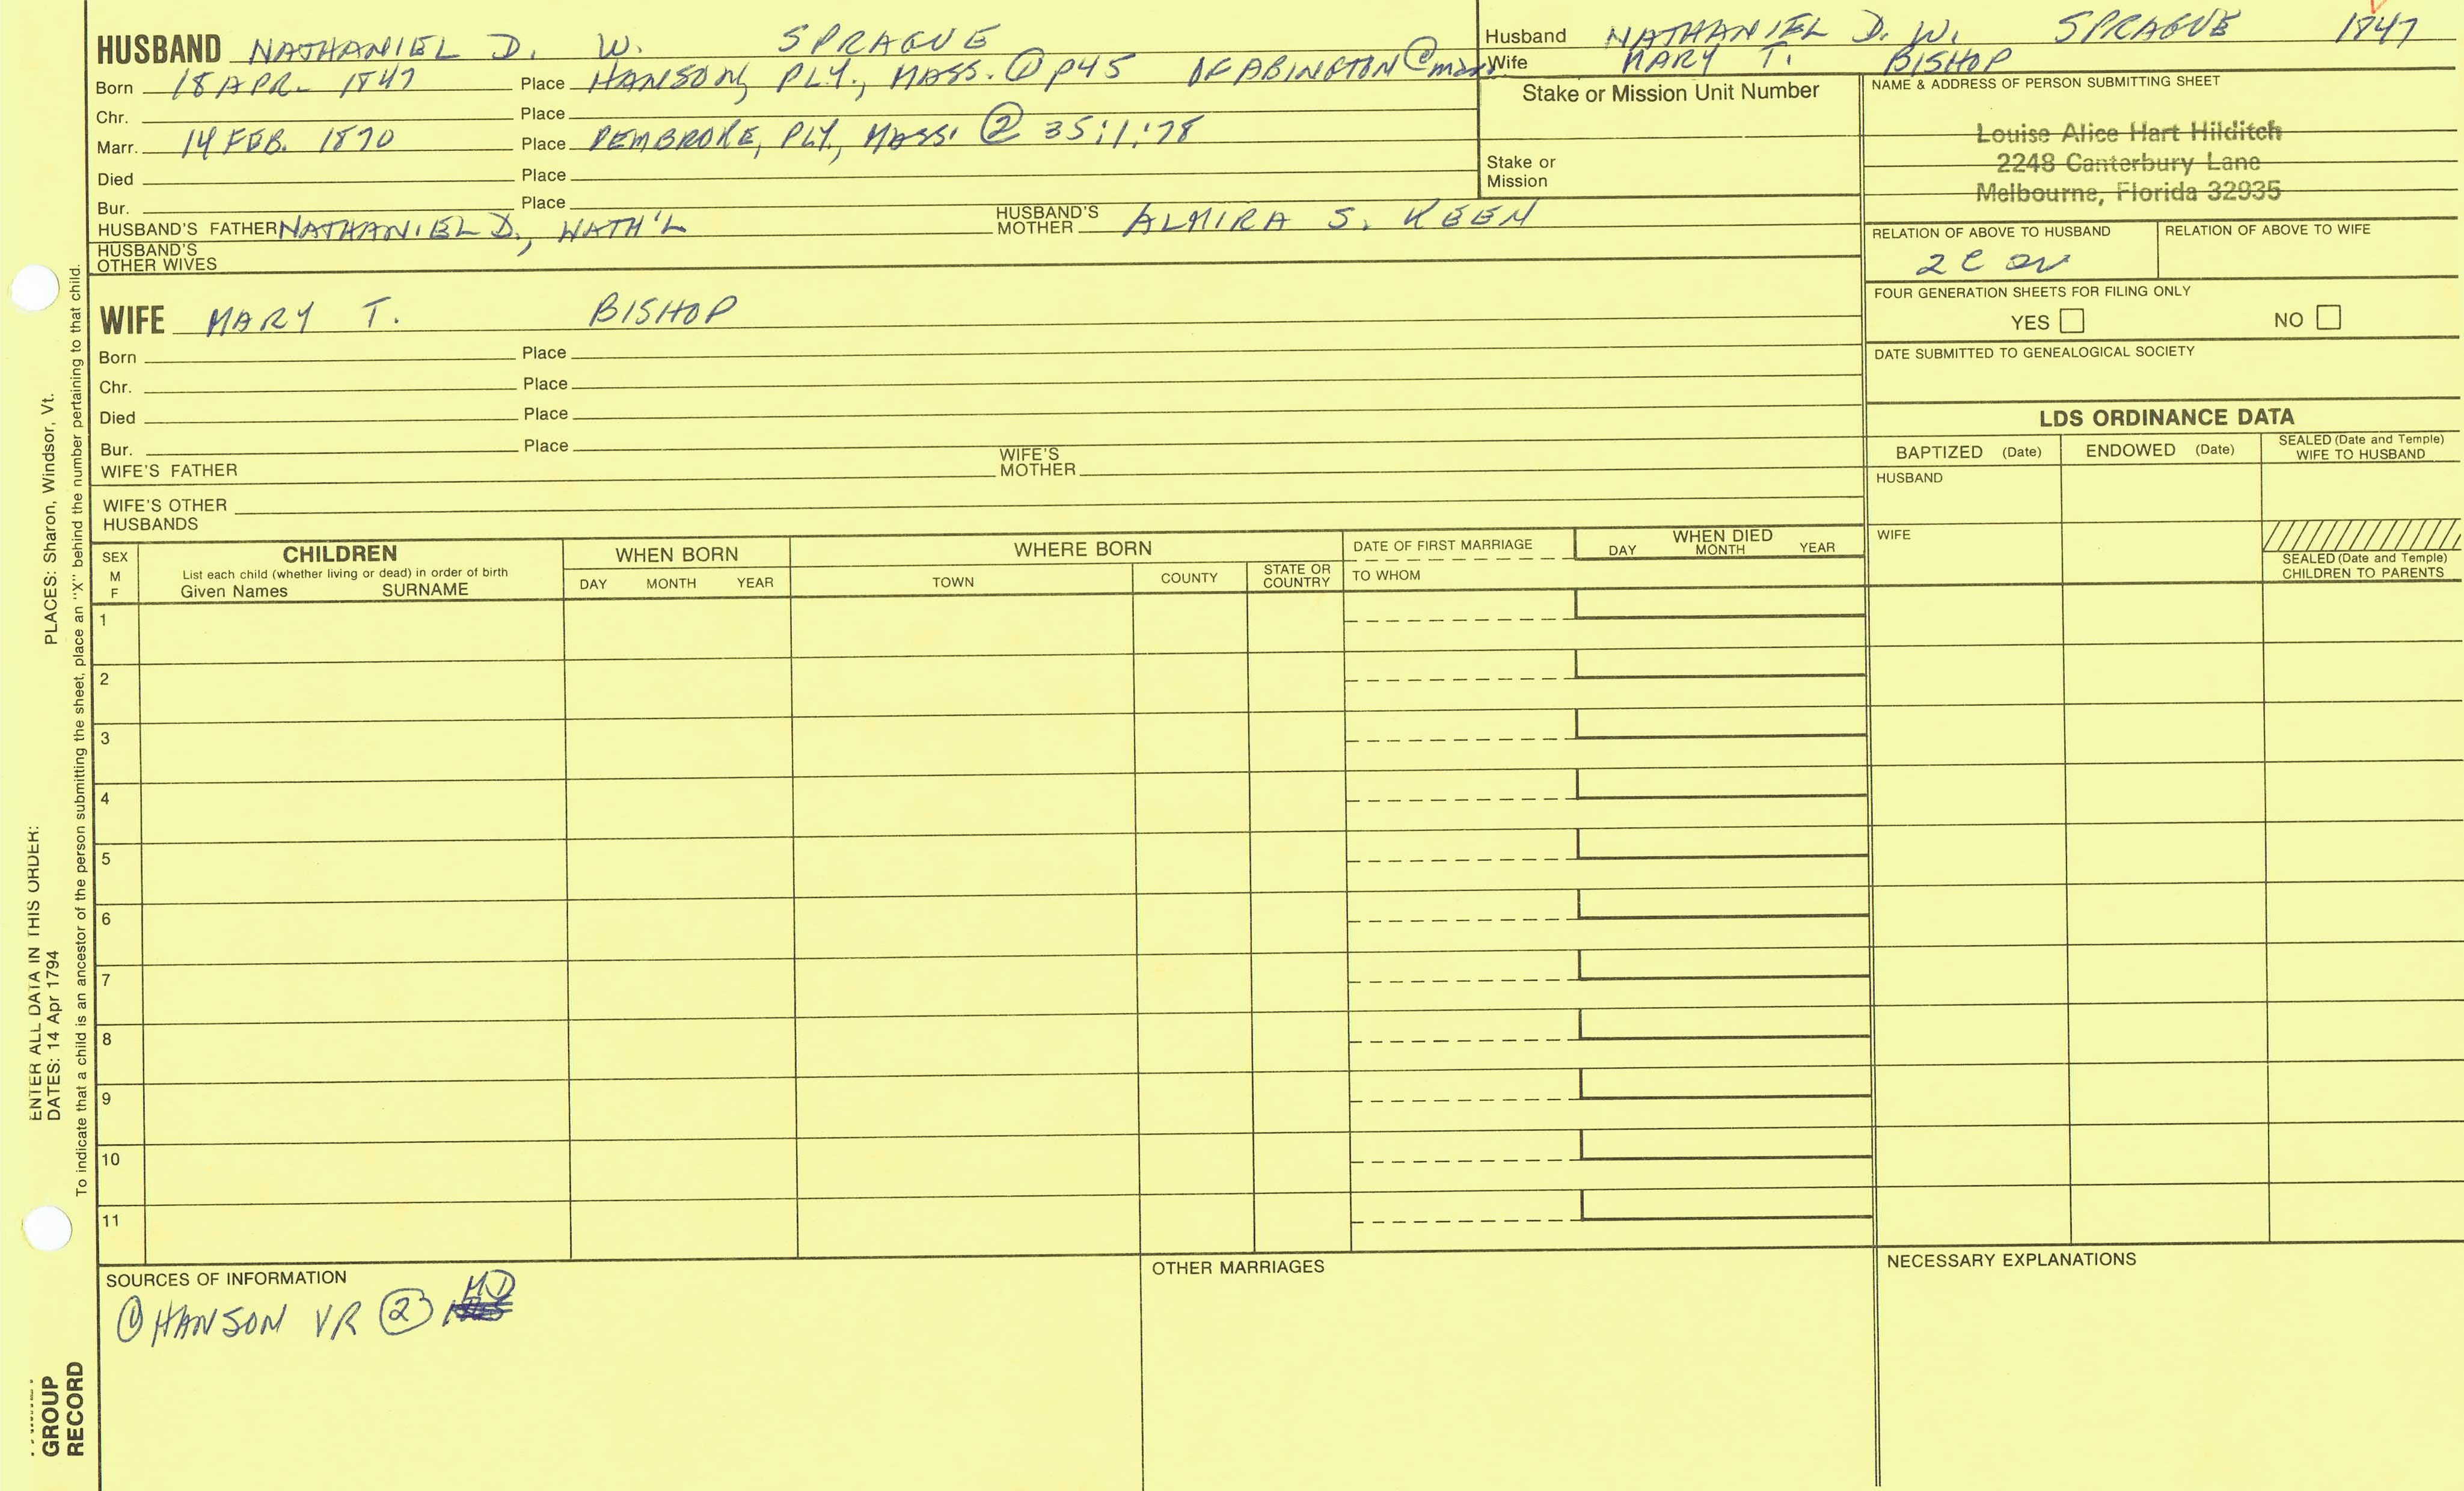 HUSBAND NATHANIEL D. W. SPRAGUE
Born 18 APR. 1847 Place HANSON, PLY., MASS. ① P45 OF ABINGTON @ marr.
Chr. Place
Marr. 14 FEB. 1870 Place PEMBROKE, PLY., MASS. ② 35:1:78
Died Place
Bur. Place
HUSBAND'S FATHER NATHANIEL D., NATH'L HUSBAND'S MOTHER ALMIRA S. KEEN
HUSBAND'S OTHER WIVES
Husband NATHANIEL D. W. SPRAGUE 1847
Wife MARY T. BISHOP
Stake or Mission Unit Number
Stake or
Mission
NAME & ADDRESS OF PERSON SUBMITTING SHEET
Louise Alice Hart Hilditch
2248 Canterbury Lane
Melbourne, Florida 32935
RELATION OF ABOVE TO HUSBAND RELATION OF ABOVE TO WIFE
2 C
FOUR GENERATION SHEETS FOR FILING ONLY
YES NO
DATE SUBMITTED TO GENEALOGICAL SOCIETY
WIFE MARY T. BISHOP
Born Place
Chr. Place
Died Place
Bur. Place
WIFE'S FATHER WIFE'S MOTHER
WIFE'S OTHER
HUSBANDS
LDS ORDINANCE DATA
BAPTIZED (Date) ENDOWED (Date) SEALED (Date and Temple) WIFE TO HUSBAND
HUSBAND
WIFE
SEALED (Date and Temple)
CHILDREN TO PARENTS
SEX
M
F
CHILDREN
List each child (whether living or dead) in order of birth
Given Names SURNAME
WHEN BORN
DAY MONTH YEAR
WHERE BORN
TOWN COUNTY STATE OR COUNTRY
DATE OF FIRST MARRIAGE
TO WHOM
WHEN DIED
DAY MONTH YEAR
1
2
3
4
5
6
7
8
9
10
11
SOURCES OF INFORMATION
① HANSON VR ② MD
OTHER MARRIAGES
NECESSARY EXPLANATIONS
ENTER ALL DATA IN THIS ORDER:
DATES: 14 Apr 1794 PLACES: Sharon, Windsor, Vt.
To indicate that a child is an ancestor of the person submitting the sheet, place an "X" behind the number pertaining to that child.
GROUP
RECORD